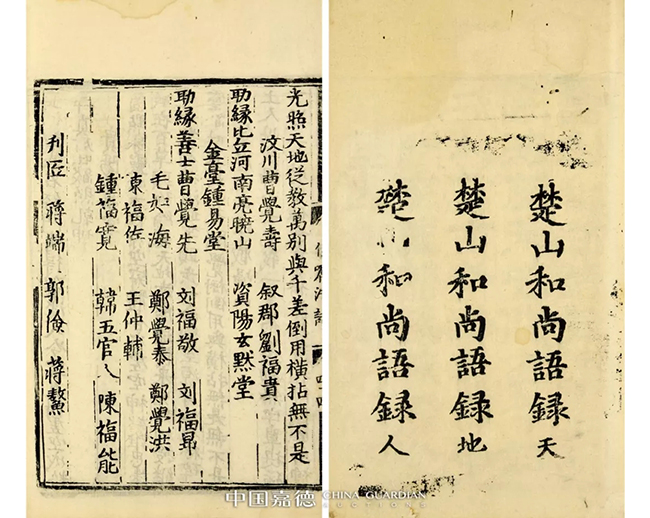 光照天地從教萬別與千差倒用橫拈無不是
汶川曹覺壽 叙郡劉福貴
助緣比丘河南亮曉山 資陽玄默堂
金臺鍾易堂
助緣善士曹覺先 刘福敬 刘福昻
毛 海 鄭覺泰 鄭覺洪
福佐 王仲輔
鍾福寬 韓五官 陳福能
刋匠 蔣端 郭儉 蔣鰲
楚山和尚語録天
楚山和尚語録地
楚山和尚語録人
中国嘉德 CHINA GUARDIAN
AUCTIONS